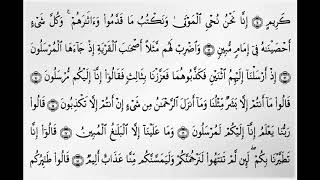 كَرِيمٍ ۝ إِنَّا نَحْنُ نُحْيِ ٱلْمَوْتَىٰ وَنَكْتُبُ مَا قَدَّمُوا۟ وَءَاثَٰرَهُمْ ۚ وَكُلَّ شَىْءٍ
أَحْصَيْنَٰهُ فِىٓ إِمَامٍ مُّبِينٍ ۝ وَٱضْرِبْ لَهُم مَّثَلًا أَصْحَٰبَ ٱلْقَرْيَةِ إِذْ جَآءَهَا ٱلْمُرْسَلُونَ
۝ إِذْ أَرْسَلْنَآ إِلَيْهِمُ ٱثْنَيْنِ فَكَذَّبُوهُمَا فَعَزَّزْنَا بِثَالِثٍ فَقَالُوٓا۟ إِنَّآ إِلَيْكُم مُّرْسَلُونَ ۝
قَالُوا۟ مَآ أَنتُمْ إِلَّا بَشَرٌ مِّثْلُنَا وَمَآ أَنزَلَ ٱلرَّحْمَٰنُ مِن شَىْءٍ إِنْ أَنتُمْ إِلَّا تَكْذِبُونَ ۝ قَالُوا۟
رَبُّنَا يَعْلَمُ إِنَّآ إِلَيْكُمْ لَمُرْسَلُونَ ۝ وَمَا عَلَيْنَآ إِلَّا ٱلْبَلَٰغُ ٱلْمُبِينُ ۝ قَالُوٓا۟ إِنَّا
تَطَيَّرْنَا بِكُمْ ۖ لَئِن لَّمْ تَنتَهُوا۟ لَنَرْجُمَنَّكُمْ وَلَيَمَسَّنَّكُم مِّنَّا عَذَابٌ أَلِيمٌ ۝ قَالُوا۟ طَٰٓئِرُكُم